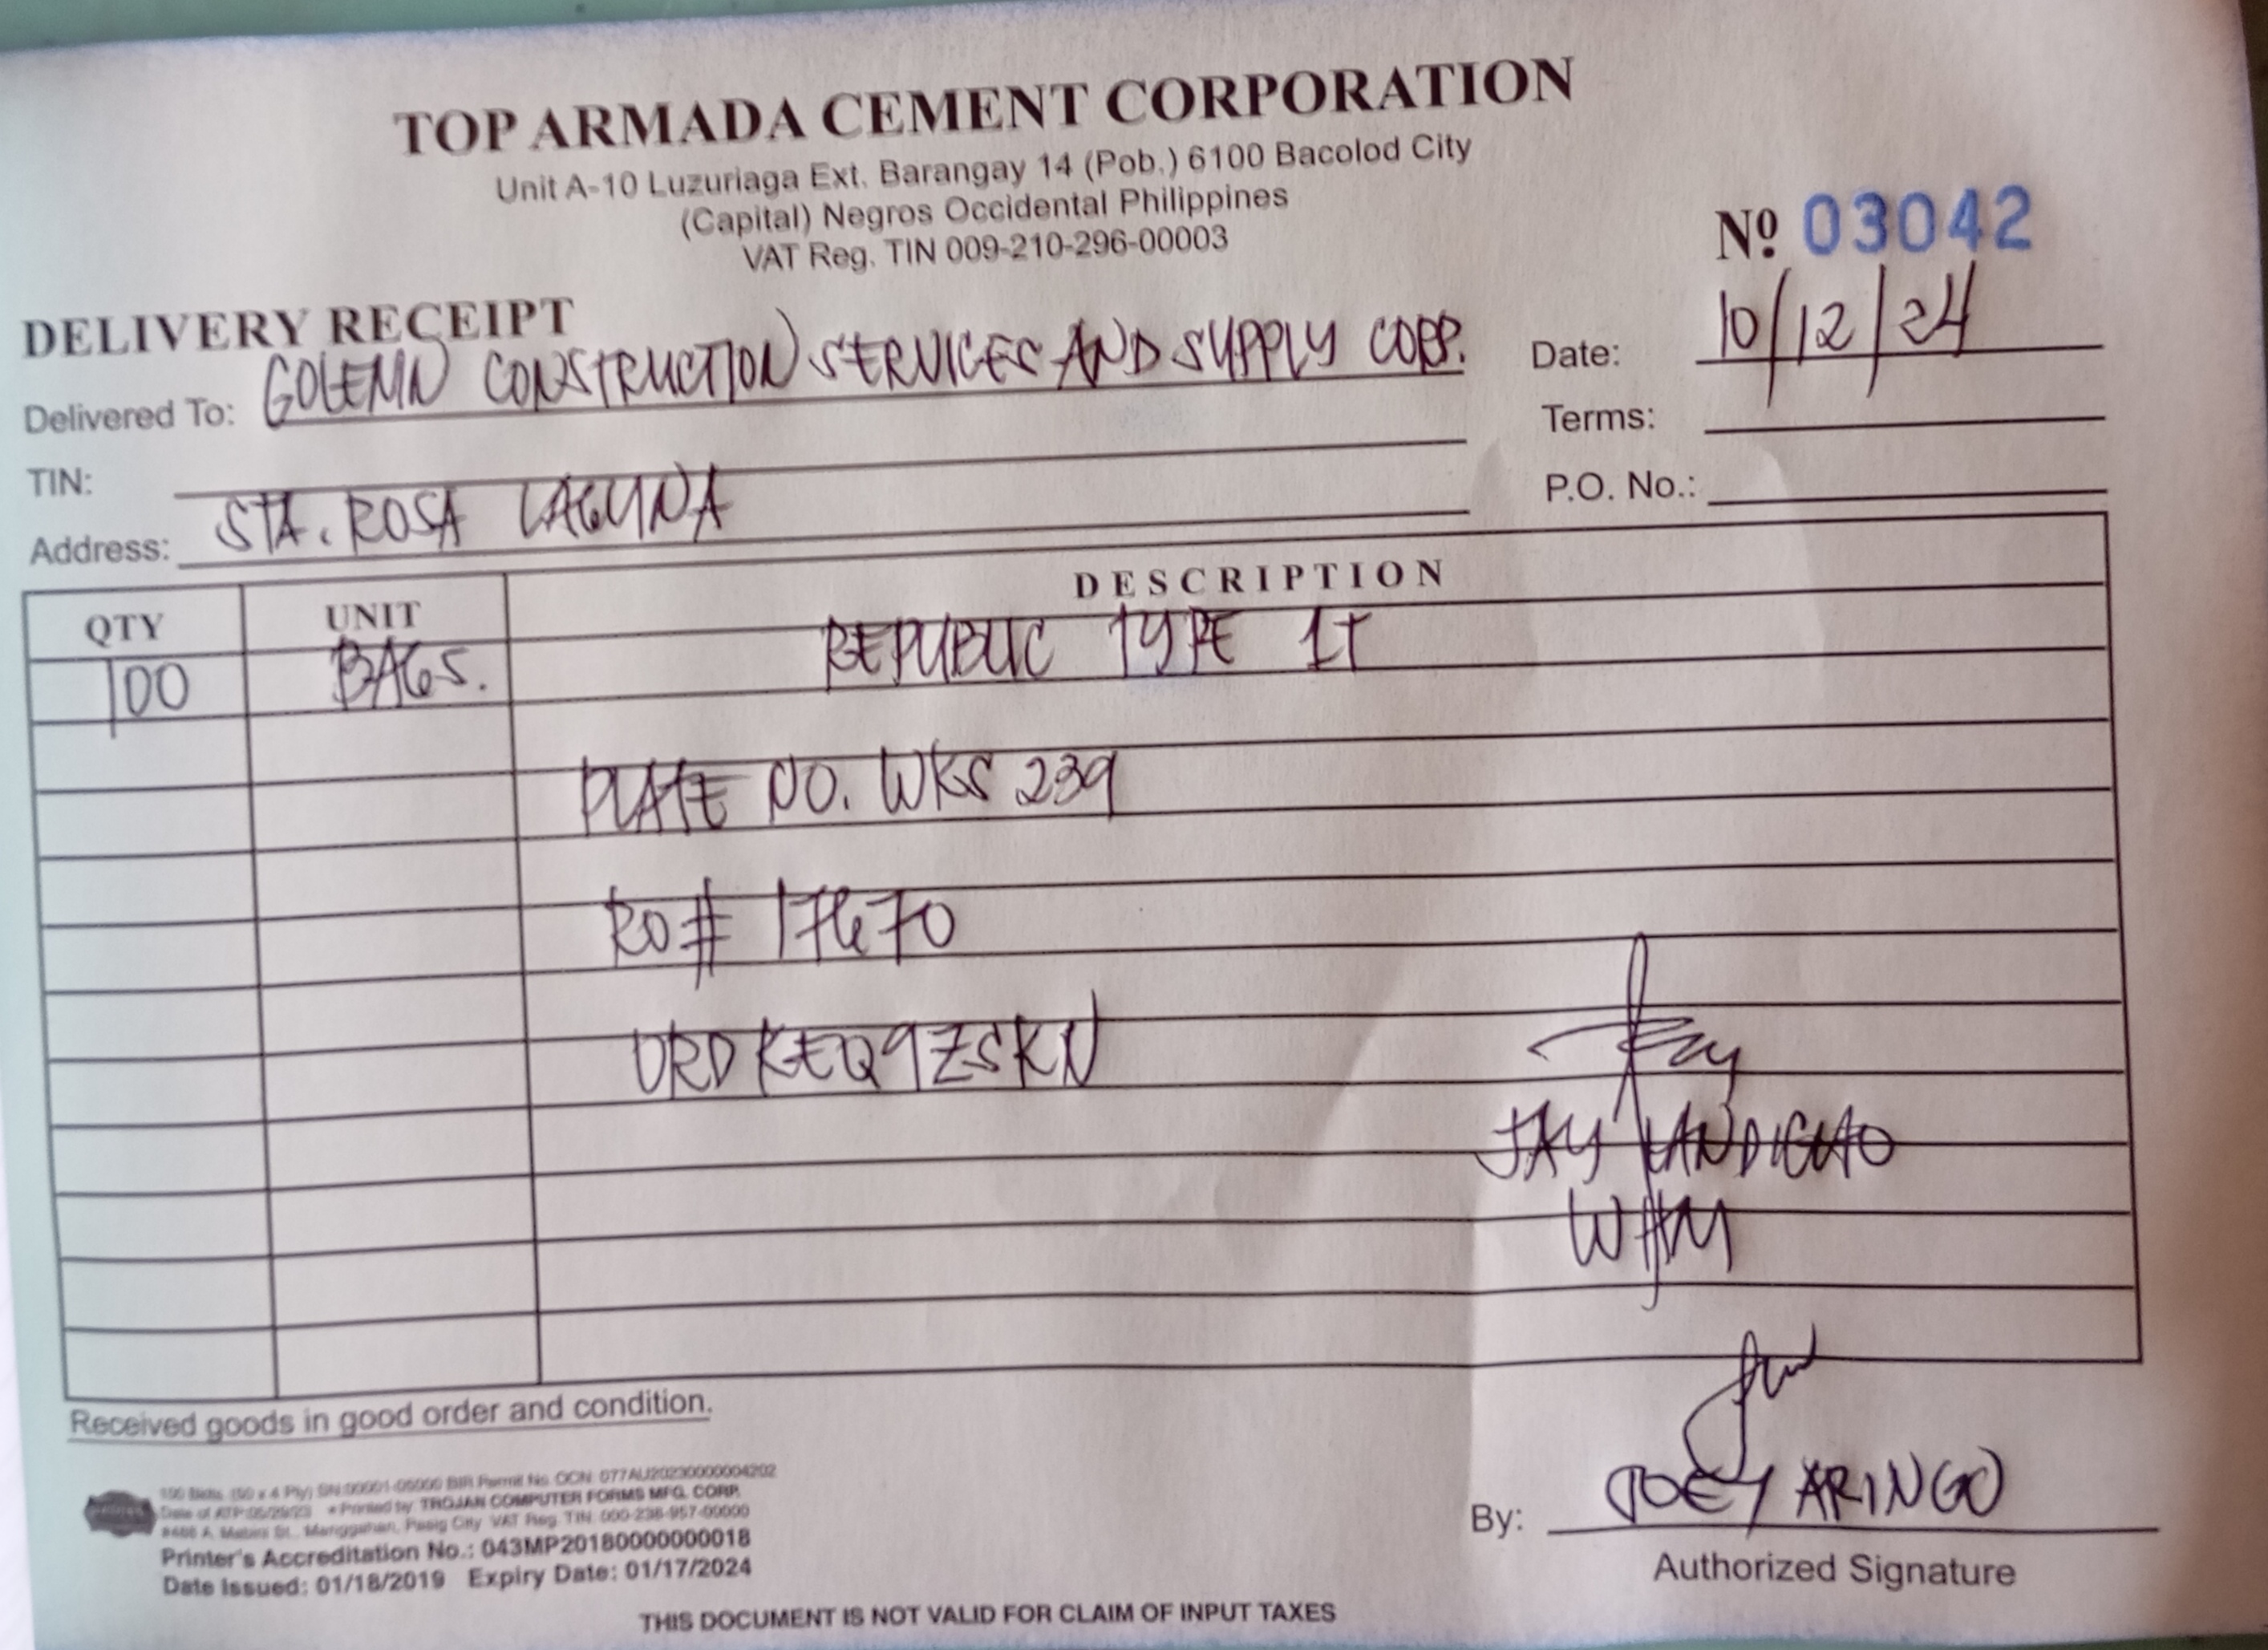 TOP ARMADA CEMENT CORPORATION
Unit A-10 Luzuriaga Ext. Barangay 14 (Pob.) 6100 Bacolod City
(Capital) Negros Occidental Philippines
VAT Reg. TIN 009-210-296-00003
Nº 03042
DELIVERY RECEIPT
Delivered To: GOLEMN CONSTRUCTION SERVICES AND SUPPLY CORP.
Date: 10/12/24
Terms:
TIN:
P.O. No.:
Address: STA. ROSA LAGUNA
QTY UNIT DESCRIPTION
100 BAGS. REPUBLIC TYPE 1T
PLATE NO. WKS 239
RO# 17670
ORDKEQ9ZSKN
JAY
WHM
Received goods in good order and condition.
100 Bklts. (50 x 4 Ply) SN:00001-05000 BIR Permit No. OCN: 077AU20230000004202
Date of ATP:05/29/23 Printed by: TROJAN COMPUTER FORMS MFG. CORP.
A. Mabini St., Manggahan, Pasig City VAT Reg. TIN: 000-238-957-00000
Printer's Accreditation No.: 043MP20180000000018
Date Issued: 01/18/2019 Expiry Date: 01/17/2024
By: JOEY ARINGO
Authorized Signature
THIS DOCUMENT IS NOT VALID FOR CLAIM OF INPUT TAXES